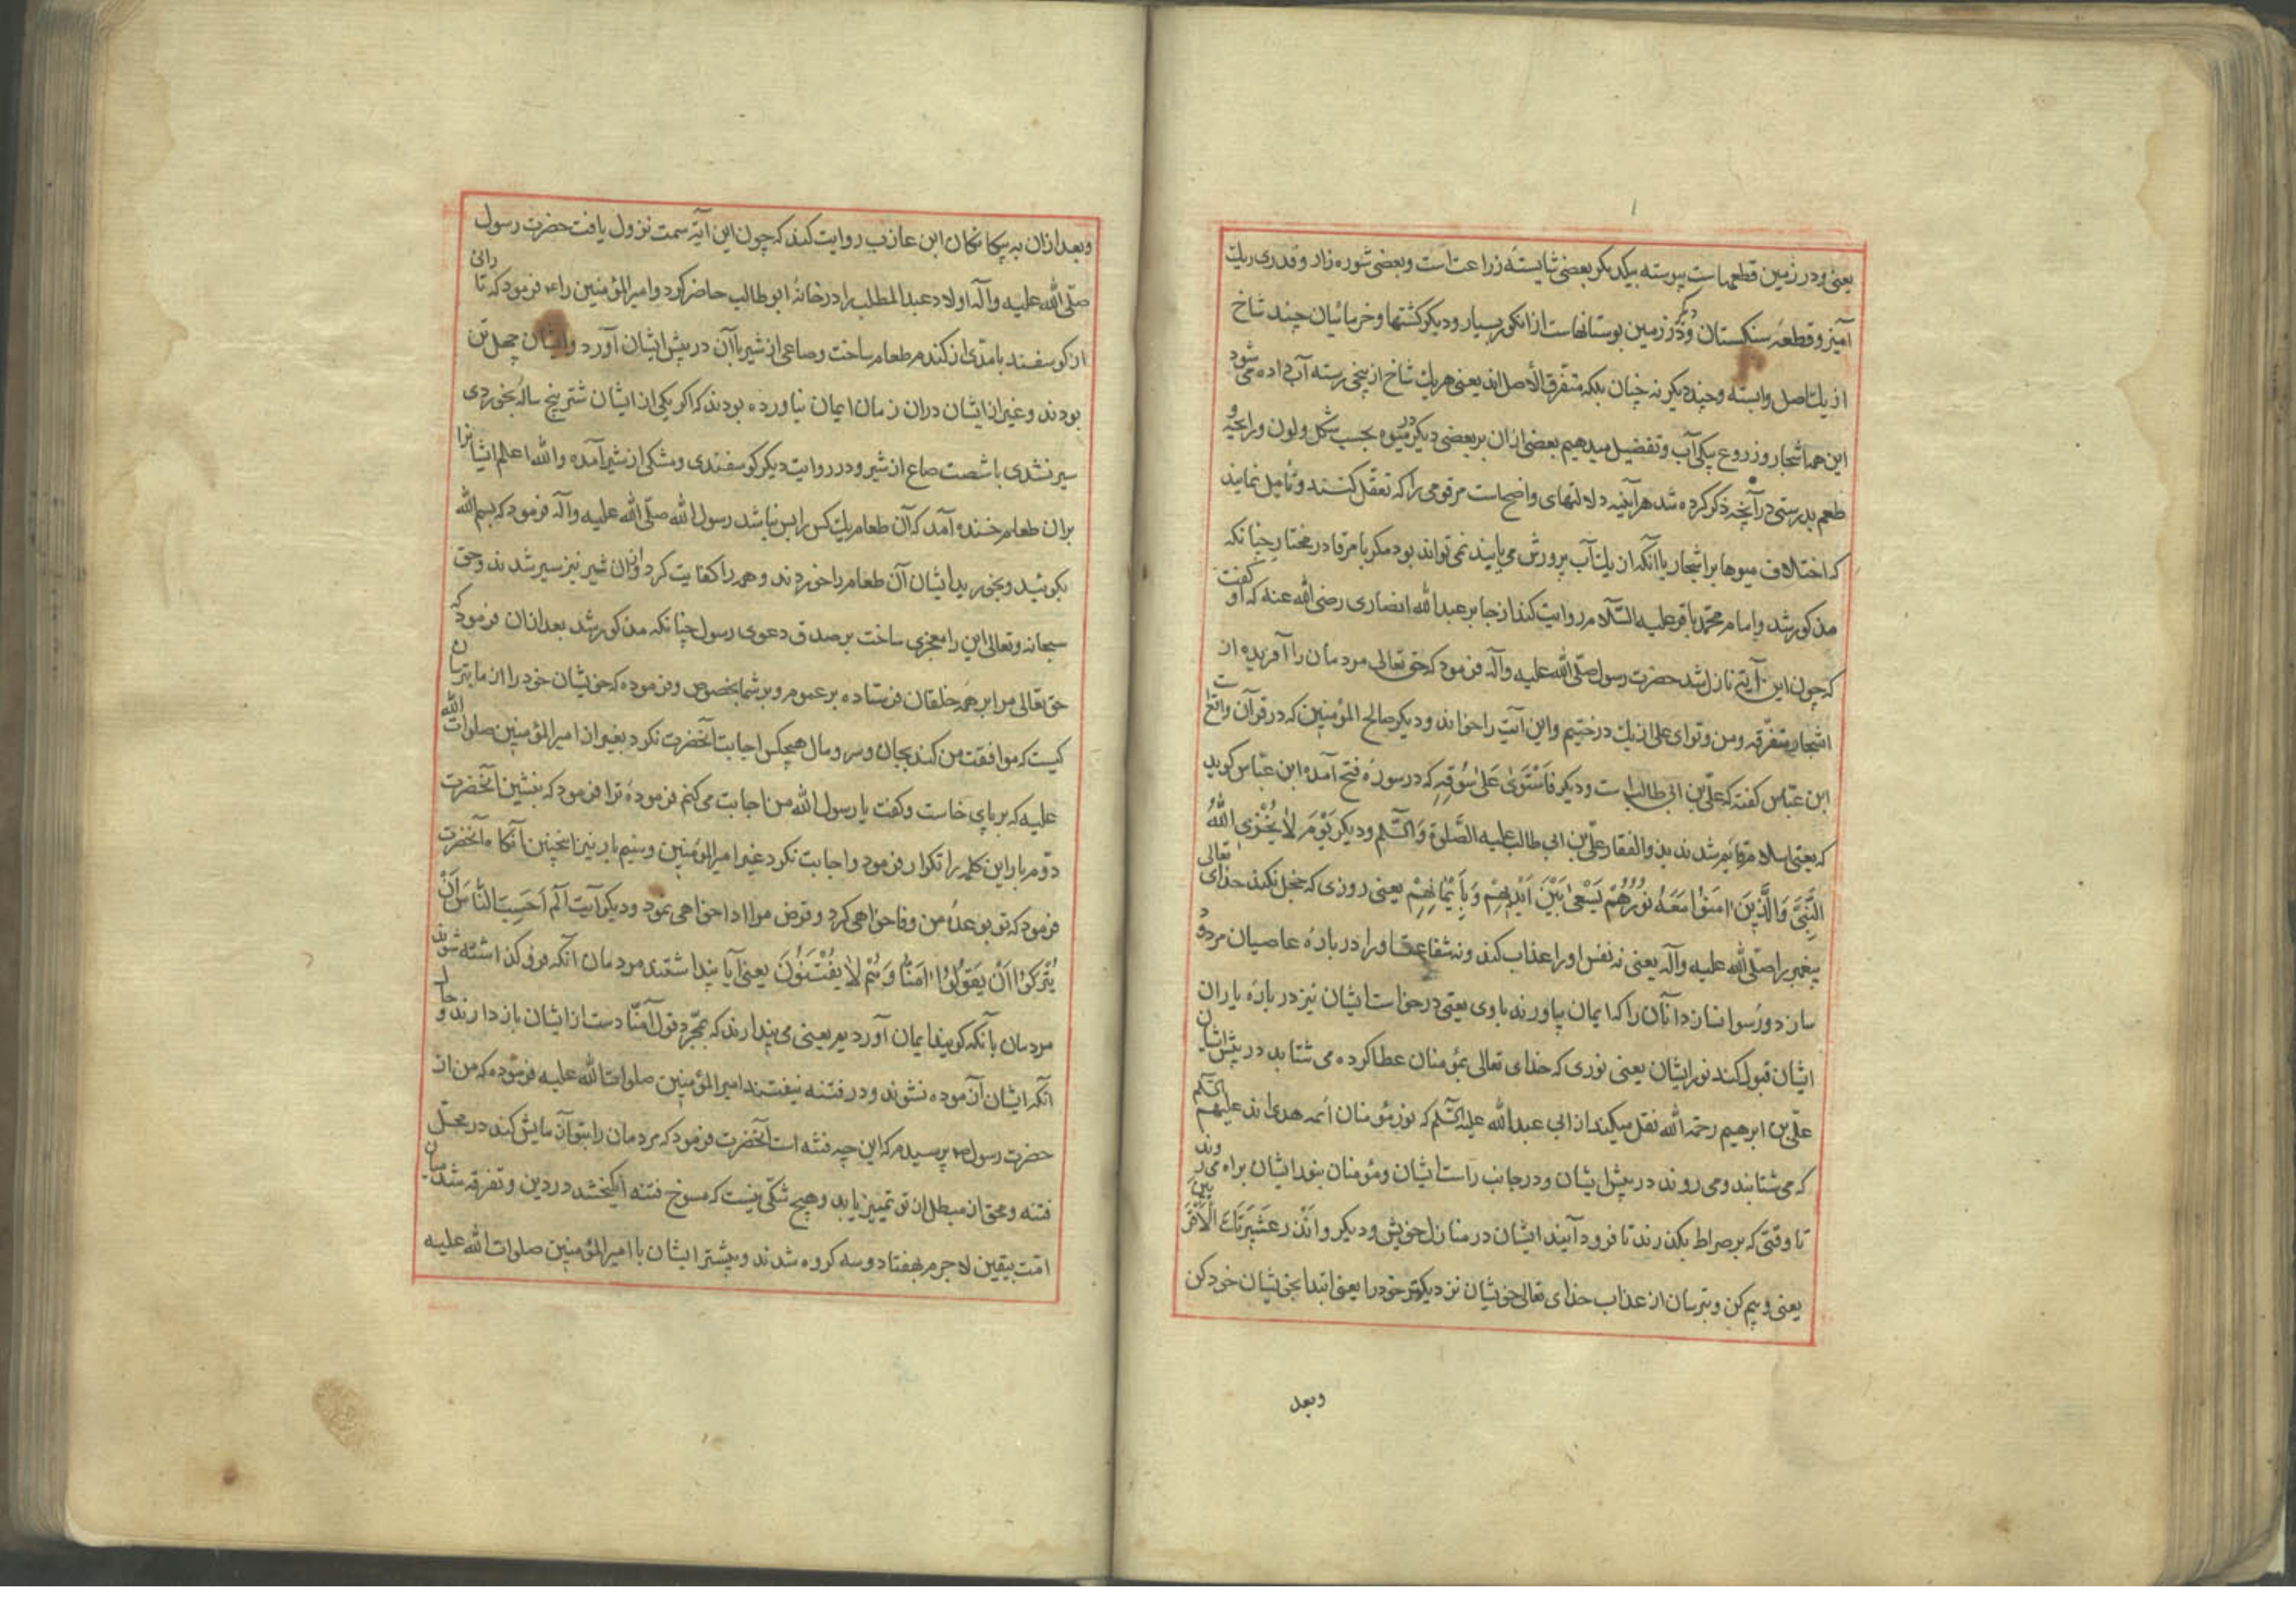 یعنی ودر زمین قطعهاست پیوسته بیکدیکر بعضی شایسته زراعت است وبعضی شوره زار وقدری ریك
آمیز وقطعهٔ سنکستان ودر زمین بوستانهاست از انکور بسیار ودیکر کشتها وخرمائیان چند شاخ
از یك اصل وابسته وچند دیکر نه چنان بلکه متفرق الأصل اند یعنی هر یك شاخ از بیخی رسته آب داده می شود
این همه اشجار وزروع بیکی آب وتفضیل میدهیم بعضی ازان بر بعضی دیکر در میوه بحسب شکل ولون ورایحه و
طعم بدرستی درآنچه ذکر کرده شد هرآینه دلالتهای واضحاست مر قومی را که تعقل کنند وتأمل نمایند
که اختلاف میوها بر اشجار باآنکه از یك آب پرورش می یابند نمی تواند بود مکر بامر قادر مختار چنانکه
مذکور شد وامام محمد باقر علیه السّلام روایت کند از جابر عبدالله انصاری رضی الله عنه که او کفت
که چون این آیتی نازل شد حضرت رسول صلّی الله علیه وآله فرمود که حق تعالی مردمان را آفریده از
اشجار متفرّقه ومن وتو ای علی از یك درختیم واین آیت را خواند ودیکر صالح المؤمنین که در قرآن واقع است
ابن عبّاس کفته که علی بن ابی طالب است ودیکر فَاسْتَوٰی عَلیٰ سُوقِهِ که در سورهٔ فتح آمده ابن عبّاس کوید
که یعنی اسلام قایم شد بذوالفقار علی بن ابی طالب علیه الصَّلوة وَالسّلم ودیکر یَوْمَ لاٰ یُخْزِی اللّٰهُ
النَّبِیَّ وَالَّذِینَ اٰمَنُوا مَعَهُ نُورُهُمْ یَسْعیٰ بَیْنَ اَیْدِیهِمْ وَبِأَیْمٰانِهِمْ یعنی روزی که خجل نکند خدای تعالی
پیغمبر را صلّی الله علیه وآله یعنی نه نفس او را عذاب کند ونه شفاعت او را در بارهٔ عاصیان مردود
سازد ورسوا نسازد آنان را که ایمان بیاورند باوی یعنی درخواست ایشان نیز در بارهٔ یاران
ایشان قبول کند نور ایشان یعنی نوری که خدای تعالی بمؤمنان عطا کرده می شتابد در پیش ایشان
علی بن ابرهیم رحمه الله نقل میکند از ابی عبدالله علیه السّلم که نور مؤمنان ائمه هدی اند علیهم السّلم
که می شتابند ومی روند در پیش ایشان ودر جانب راست ایشان ومؤمنان بنور ایشان براه می روند
تا وقتی که بر صراط بکذرند تا فرود آیند ایشان در منازل خویش ودیکر وَاَنْذِر عَشِیرَتَكَ الْاَقْرَبِینَ
یعنی وبیم کن وبترسان از عذاب خدای تعالی خویشان نزدیکتر خود را یعنی ابتدا بخویشان خود کن
وبعد
وبعد ازان به بیکانکان ابن عازب روایت کند که چون این آیة سمت نزول یافت حضرت رسول
صلّی الله علیه وآله اولاد عبدالمطلب را در خانهٔ ابوطالب حاضر کرد وامیرالمؤمنین راء فرمود که تا رانی
از کوسفند بامدّی از کندم طعام ساخت وصاعی از شیر باآن در پیش ایشان آورد وایشان چهل تن
بودند وغیر از ایشان دران زمان ایمان نیاورده بودند که اکر یکی از ایشان شتر پنج ساله بخوردی
سیر نشدی باشصت صاع از شیر ودر روایت دیکر کوسفندی ومشکی از شیر آمده والله اعلم ایشانرا
بران طعام خنده آمد که آن طعام یك کس را بس نباشد رسول الله صلّی الله علیه وآله فرمود که بسم الله
بکوئید وبخورید ایشان آن طعام را خوردند وهمه را کفایت کرد وازان شیر نیز سیر شدند وحق
سبحانه وتعالی این را معجزی ساخت بر صدق دعوی رسول چنانکه مذکور شد بعد ازان فرمود که
حق تعالی مرا بر همه خلقان فرستاده بر عموم وبر شما بخصوص وفرموده که خویشان خود را از ما بترسان
کیست که موافقت من کند بجان وسر ومال هیچکس اجابت آنحضرت نکرد بغیر از امیرالمؤمنین صلوات الله
علیه که بر پای خاست وکفت یا رسول الله من اجابت می کنم فرمودهٔ ترا فرمود که بنشین آنحضرت
دوّم بار این کلمه را تکرار فرمود واجابت نکرد غیر امیرالمؤمنین وسیم بار نیز اینچنین آنکاه آنحضرت
فرمود که تو بوعدهٔ من وفا خواهی کرد وقرض مرا ادا خواهی نمود ودیکر آیت الم اَحَسِبَ النّٰاسُ اَنْ
یُتْرَکُوا اَنْ یَقُولُوا اٰمَنّٰا وَهُمْ لاٰ یُفْتَنُونَ یعنی آیا پنداشتند مردمان آنکه فروکذاشته شوند
مردمان بآنکه کویند ایمان آوردیم یعنی می پندارند که بمجرّد قول آمنّا دست از ایشان بازدارند وحال
آنکه ایشان آزموده نشوند ودر فتنه نیفتند امیرالمؤمنین صلوات الله علیه فرموده که من از
حضرت رسول ص پرسیدم که این چه فتنه است آنحضرت فرمود که مردمان را بتو آزمایش کند در محلّ
فتنه ومحق از مبطل از تو تمییز یابد وهیچ شکی نیست که فتنه انکیخته شد در دین وتفرقه شد میان
امّت بیقین لاجرم بهفتاد وسه کروه شدند وبیشتر ایشان باامیرالمؤمنین صلوات الله علیه